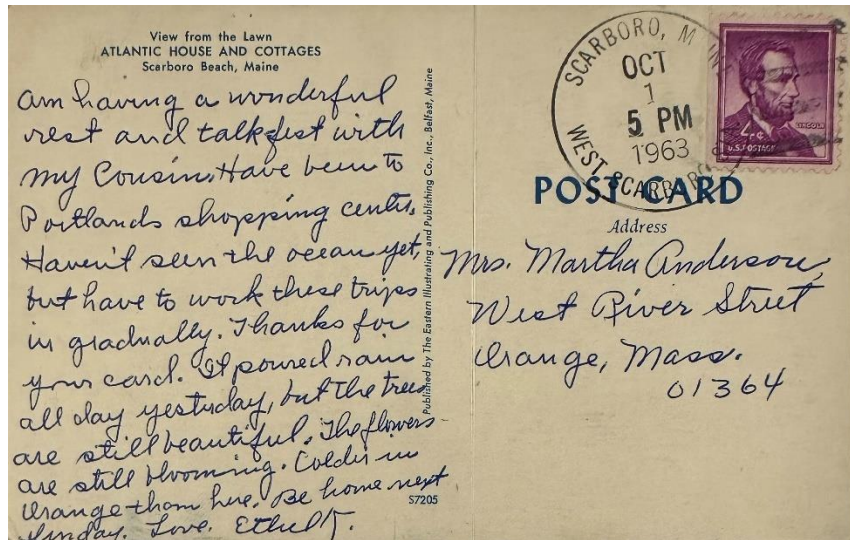 View from the Lawn
ATLANTIC HOUSE AND COTTAGES
Scarboro Beach, Maine
am having a wonderful
rest and talkfest with
my Cousin. Have been to
Portlands shopping centre.
Haven't seen the ocean yet,
but have to work these trips
in gradually. Thanks for
your card. It poured rain
all day yesterday, but the trees
are still beautiful. The flowers
are still blooming. Colder in
Orange than here. Be home next
Sunday. Love. Ethel K.
Published by The Eastern Illustrating and Publishing Co., Inc., Belfast, Maine
S7205
SCARBORO, M INE
OCT
1
5 PM
1963
WEST SCARBORO
LINCOLN
4¢
U.S. POSTAGE
POST CARD
Address
Mrs. Martha Anderson,
West River Street
Orange, Mass.
01364